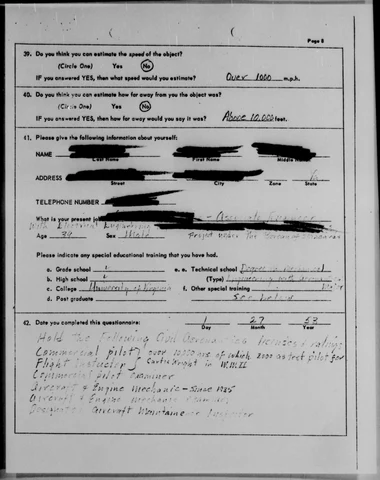 Page 8
39. Do you think you can estimate the speed of the object?
(Circle One) Yes No
IF you answered YES, then what speed would you estimate? Over 1000 m.p.h.
40. Do you think you can estimate how far away from you the object was?
(Circle One) Yes No
IF you answered YES, then how far away would you say it was? Above 10,000 feet.
41. Please give the following information about yourself:
NAME
Last Name First Name Middle Name
ADDRESS Va
Street City Zone State
TELEPHONE NUMBER
What is your present job
With Electrical Engineering
Age 39 Sex Male Project under the Bureau of
Please indicate any special educational training that you have had.
a. Grade school
b. High school
c. College University of Virginia
d. Post graduate
e. Technical school
(Type)
f. Other special training
See below
42. Date you completed this questionnaire: 1 27 53
Day Month Year
Hold The Following Civil Aeronautics Licenses & ratings
Commercial pilot over 10000 hr of which 2000 as test pilot for
Flight Instructor Curtis Wright in W.W.II
Commercial Pilot Examiner
Aircraft & Engine Mechanic - Since 1935
Aircraft & Engine Mechanic Examiner
Designated Aircraft Maintenance Inspector